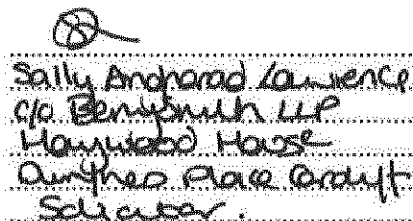 Sally Angharad Lawrence
c/o Berry Smith LLP
Haywood House
Dumfries Place Cardiff
Solicitor.